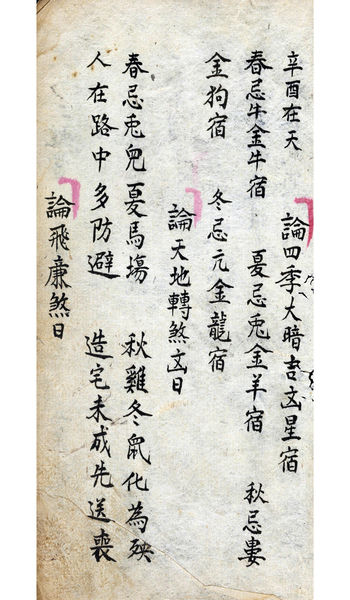 辛酉在天
論四季大暗吉凶星宿
春忌牛金牛宿　夏忌兎金羊宿　秋忌婁
金狗宿　冬忌亢金龍宿
論天地轉煞凶日
春忌兎兒夏馬塲　秋雞冬鼠化為殃
人在路中多防避　造宅未成先送喪
論飛廉煞日